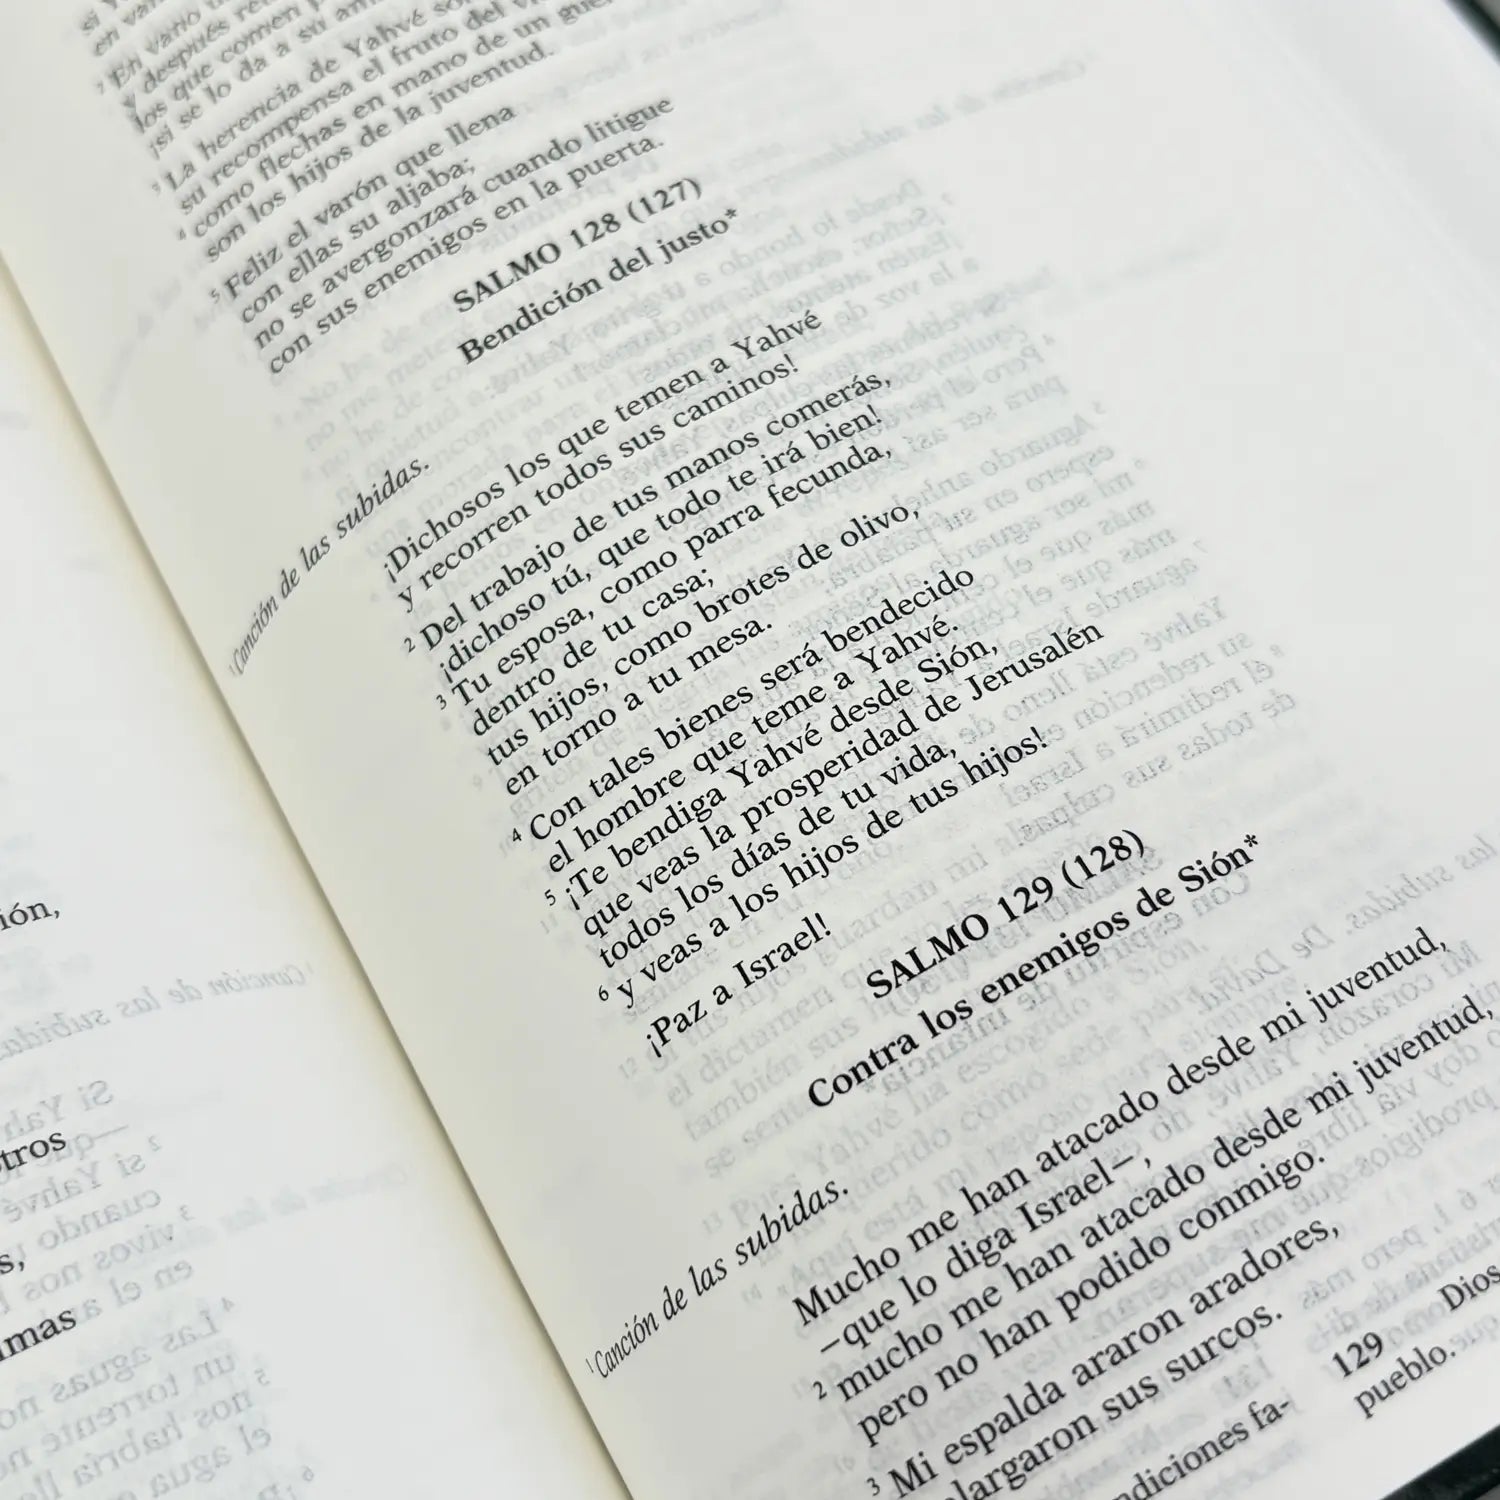 si
en vano
² En vano
y después
los que comen
¡si se lo da a su
³ La herencia de Yahvé son
su recompensa el fruto del
⁴ como flechas en mano de un
son los hijos de la juventud.
⁵ Feliz el varón que llena
con ellas su aljaba;
no se avergonzará cuando litigue
con sus enemigos en la puerta.
SALMO 128 (127)
Bendición del justo*
¹ Canción de las subidas.
¡Dichosos los que temen a Yahvé
y recorren todos sus caminos!
² Del trabajo de tus manos comerás,
¡dichoso tú, que todo te irá bien!
³ Tu esposa, como parra fecunda,
dentro de tu casa;
tus hijos, como brotes de olivo,
en torno a tu mesa.
⁴ Con tales bienes será bendecido
el hombre que teme a Yahvé.
⁵ ¡Te bendiga Yahvé desde Sión,
que veas la prosperidad de Jerusalén
todos los días de tu vida,
⁶ y veas a los hijos de tus hijos!
¡Paz a Israel!
SALMO 129 (128)
Contra los enemigos de Sión*
¹ Canción de las subidas.
Mucho me han atacado desde mi juventud,
–que lo diga Israel–,
² mucho me han atacado desde mi juventud,
pero no han podido conmigo.
³ Mi espalda araron aradores,
alargaron sus surcos.
diciones fa-
129 Dios
pueblo.
ión,
tros
s,
imas